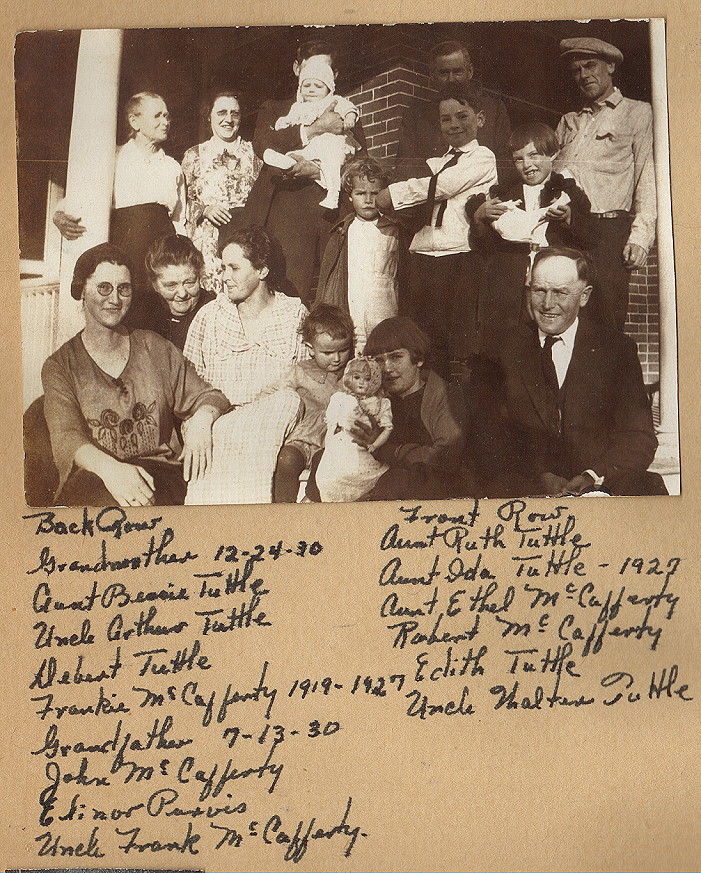 Back Row
Grandmother 12-24-30
Aunt Bessie Tuttle
Uncle Arthur Tuttle
Delbert Tuttle
Frankie McCafferty 1919-1927
Grandfather 7-13-30
John McCafferty
Elinor Purvis
Uncle Frank McCafferty.
Front Row
Aunt Ruth Tuttle
Aunt Ida Tuttle - 1927
Aunt Ethel McCafferty
Robert McCafferty
Edith Tuttle
Uncle Walter Tuttle